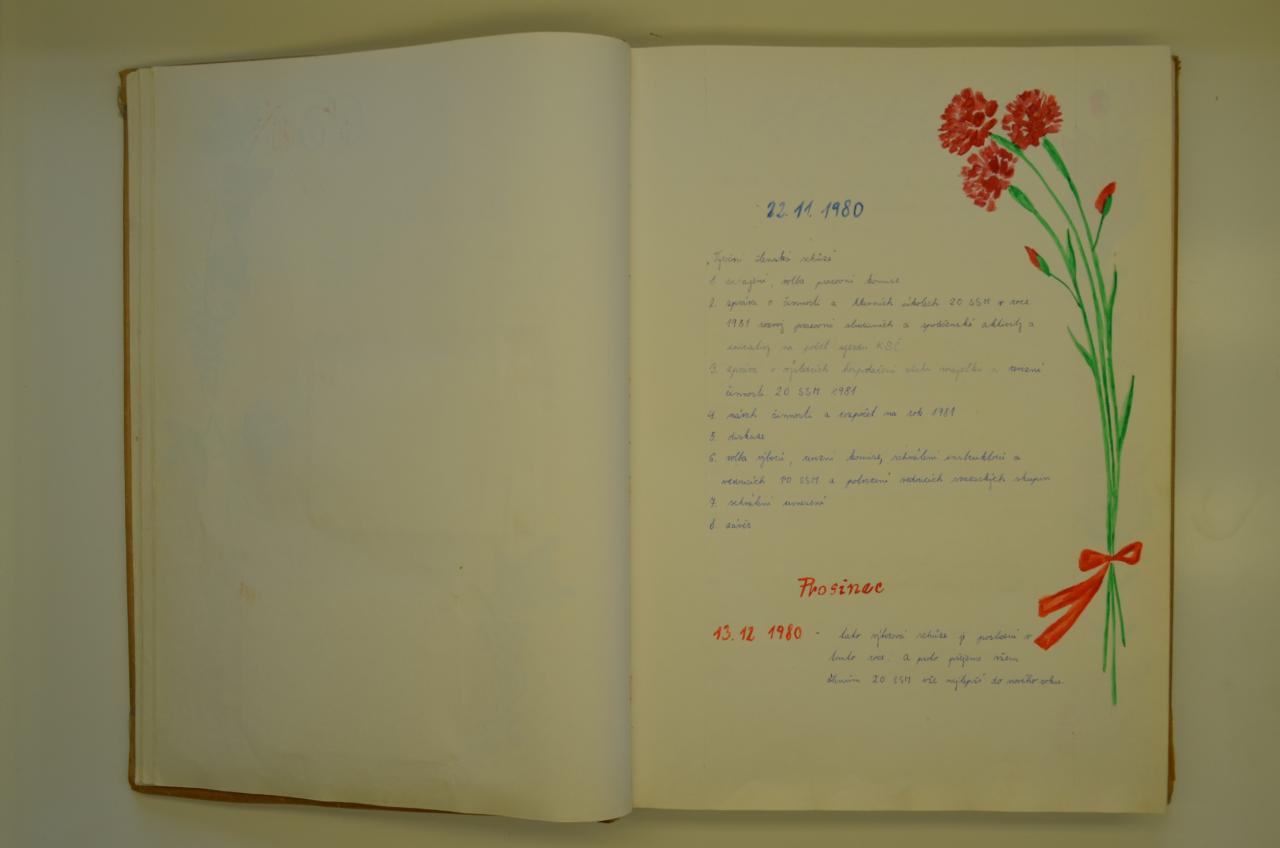 22.11.1980
Výroční členská schůze
1. zahájení, volba pracovní komise
2. zpráva o činnosti a hlavních úkolech ZO SSM v roce
1981 rozvoj pracovní a společenské aktivity a
iniciativy na počest sjezdu KSČ
3. zpráva o výsledcích hospodaření a revizní
činnosti ZO SSM 1981
4. návrh činnosti a rozpočet na rok 1981
5. diskuse
6. volba výborů, revizní komise, schválení instruktorů a
vedoucích PO SSM a potvrzení vedoucích svazáckých skupin
7. schválení usnesení
8. závěr
Prosinec
13.12 1980 - tato výborová schůze je poslední v
tomto roce. A proto přejeme všem
členům ZO SSM vše nejlepší do nového roku.